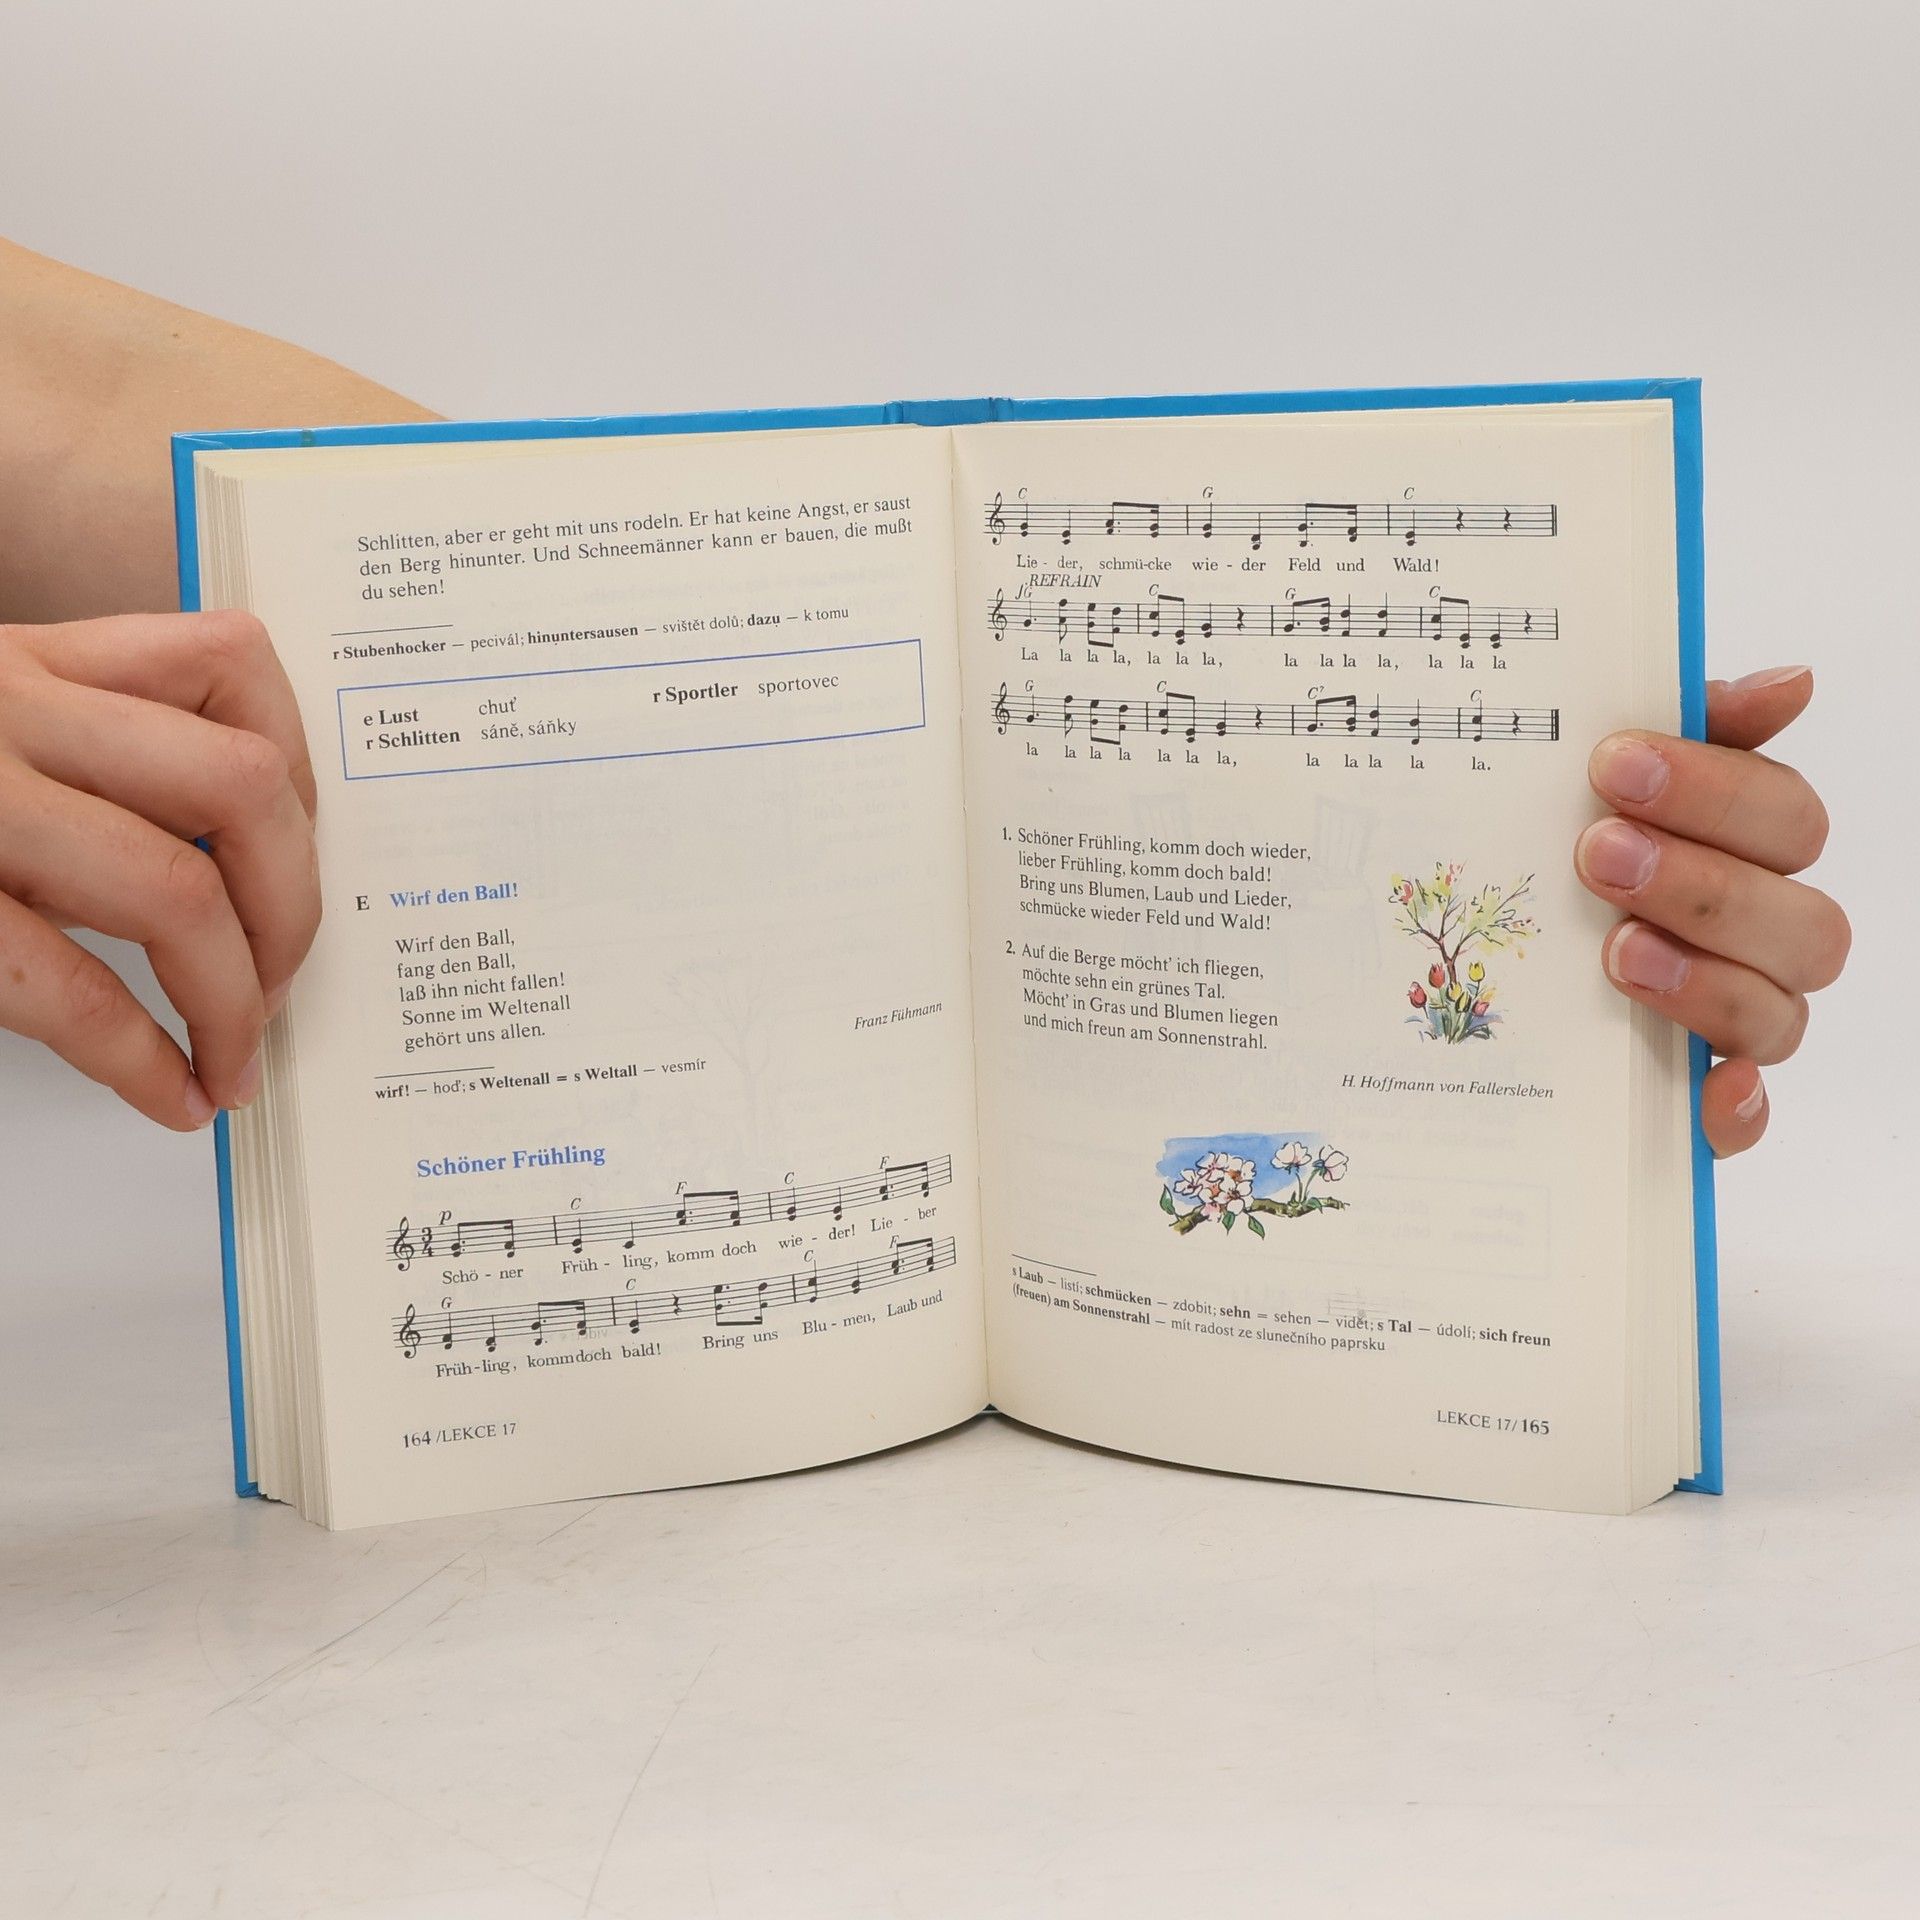 Schlitten, aber er geht mit uns rodeln. Er hat keine Angst, er saust
den Berg hinunter. Und Schneemänner kann er bauen, die mußt
du sehen!
r Stubenhocker — pecivál; hinuntersausen — svištět dolů; dazu — k tomu
e Lust chuť r Sportler sportovec
r Schlitten sáně, sáňky
E Wirf den Ball!
Wirf den Ball,
fang den Ball,
laß ihn nicht fallen!
Sonne im Weltenall
gehört uns allen.
Franz Fühmann
wirf! — hoď; s Weltenall = s Weltall — vesmír
Schöner Frühling
p C F C F
3
4
Schö - ner Früh - ling, komm doch wie - der! Lie - ber
G C C F
Früh - ling, komm doch bald! Bring uns Blu - men, Laub und
164 /LEKCE 17
C G C
Lie - der, schmü-cke wie - der Feld und Wald!
REFRAIN
f G C G C
La la la la, la la la, la la la la, la la la
G C C7 C
la la la la la la la, la la la la la.
1. Schöner Frühling, komm doch wieder,
lieber Frühling, komm doch bald!
Bring uns Blumen, Laub und Lieder,
schmücke wieder Feld und Wald!
2. Auf die Berge möcht' ich fliegen,
möchte sehn ein grünes Tal.
Möcht' in Gras und Blumen liegen
und mich freun am Sonnenstrahl.
H. Hoffmann von Fallersleben
s Laub — listí; schmücken — zdobit; sehn = sehen — vidět; s Tal — údolí; sich freun
(freuen) am Sonnenstrahl — mít radost ze slunečního paprsku
LEKCE 17/ 165